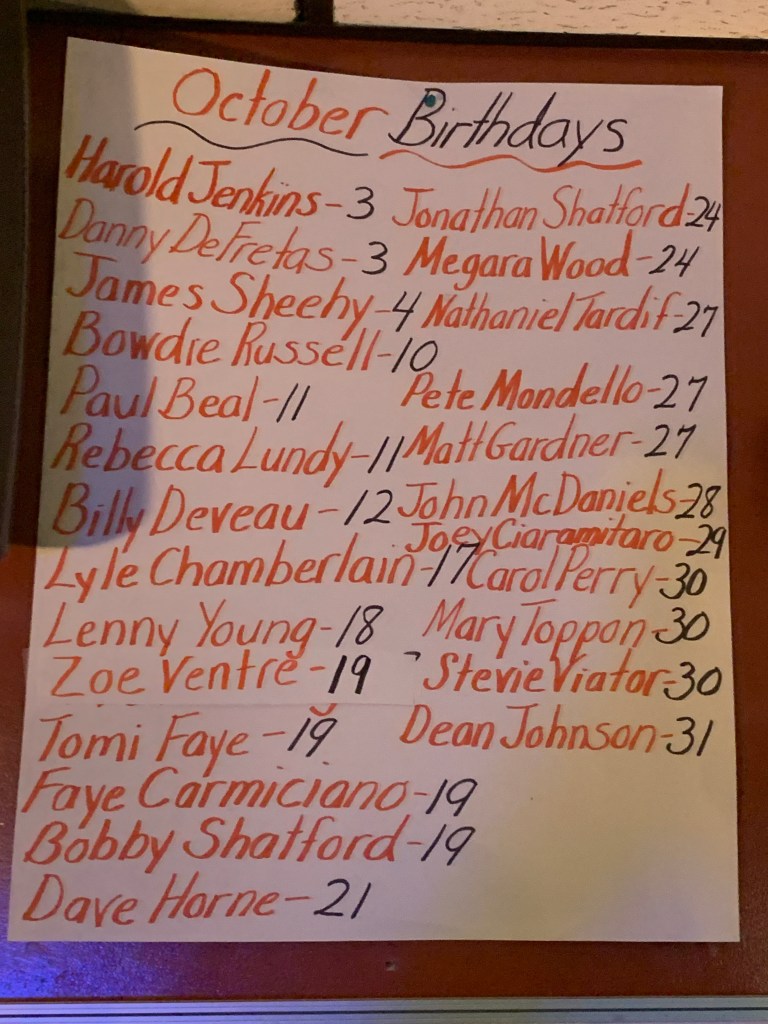 October Birthdays
Harold Jenkins-3
Danny DeFretas-3
James Sheehy-4
Bowdie Russell-10
Paul Beal-11
Rebecca Lundy-11
Billy Deveau-12
Lyle Chamberlain-17
Lenny Young-18
Zoe Ventre-19
Tomi Faye-19
Faye Carmiciano-19
Bobby Shatford-19
Dave Horne-21
Jonathan Shatford-24
Megara Wood-24
Nathaniel Tardif-27
Pete Mondello-27
Matt Gardner-27
John McDaniels-28
Joey Ciaramitaro-29
Carol Perry-30
Mary Toppan-30
Stevie Viator-30
Dean Johnson-31